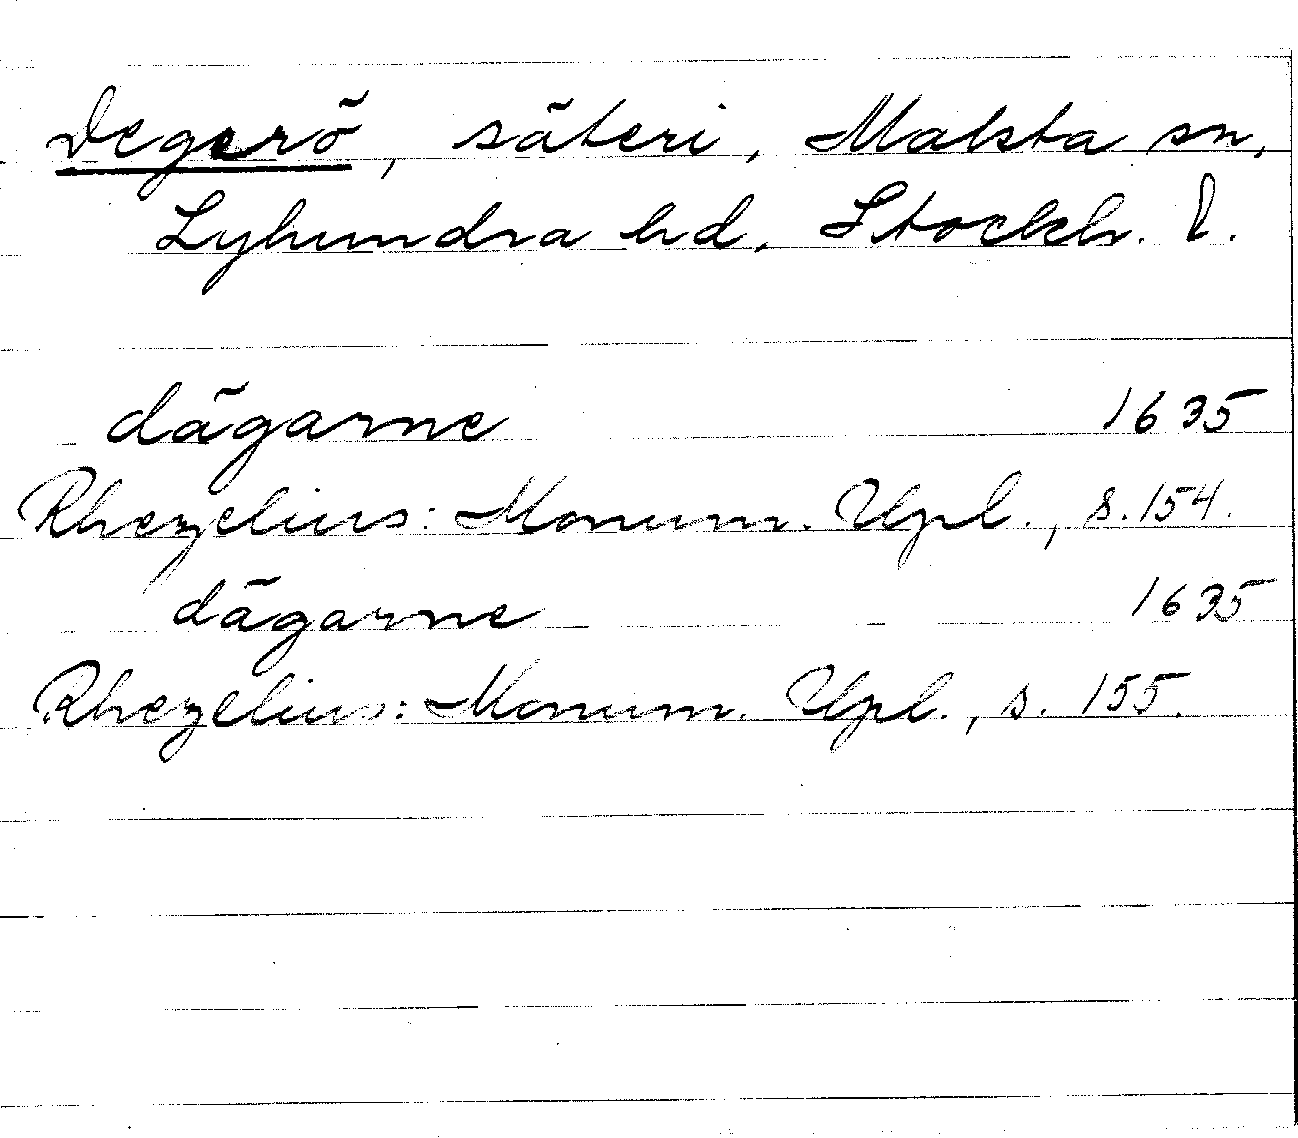 Degerö, säteri, Malsta sn,
Lyhundra hd, Stockh. l.
dägarne 1635
Rhezelius: Monum. Upl., s. 154.
dägarne 1635
Rhezelius: Monum. Upl., s. 155.